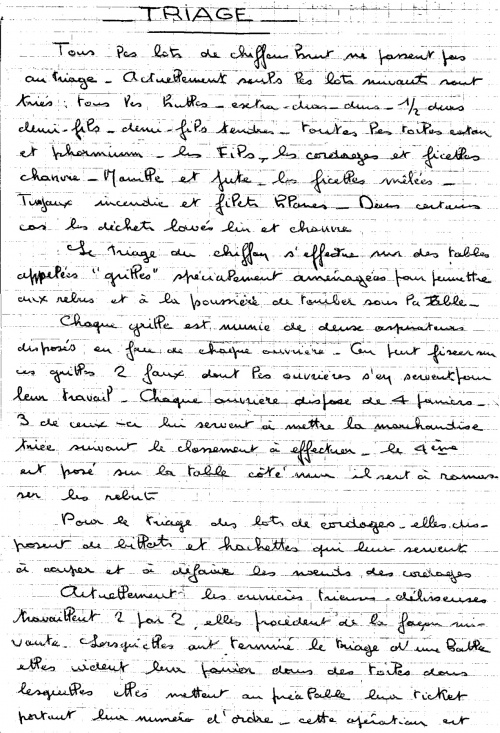 TRIAGE
Tous les lots de chiffons Brut ne passent pas
au triage - Actuellement seuls les lots suivants sont
triés : tous les Bulles - extra-durs - durs - 1/2 durs
demi-fils - demi-fils tendres - toutes les toiles coton
et phormium - les Fils, les cordages et ficelles
chanvre - Manille et jute - les ficelles mêlées -
Tuyaux incendie et filets Blancs - Dans certains
cas les déchets lavés lin et chanvre
Le triage du chiffon s'effectue sur des tables
appelées "grilles" spécialement aménagées pour permettre
aux rebus et à la poussière de tomber sous la table -
Chaque grille est munie de deux aspirateurs
disposés en face de chaque ouvrière - On peut fixer sur
ces grilles 2 faux dont les ouvrières s'en servent pour
leur travail - Chaque ouvrière dispose de 4 paniers -
3 de ceux-ci lui servent à mettre la marchandise
triée suivant le classement à effectuer - le 4ème
est posé sur la table côté mur il sert à ramas
ser les rebuts
Pour le triage des lots de cordages - elles dis-
posent de billots et hachettes qui leur servent
à couper et à défaire les noeuds des cordages
Actuellement les ouvrières trieuses - délisseuses
travaillent 2 par 2, elles procèdent de la façon sui-
vante - Lorsqu'elles ont terminé le triage d'une Balle
elles vident leur panier dans des toiles dans
lesquelles elles mettent au préalable leur ticket
portant leur numéro d'ordre - cette opération est